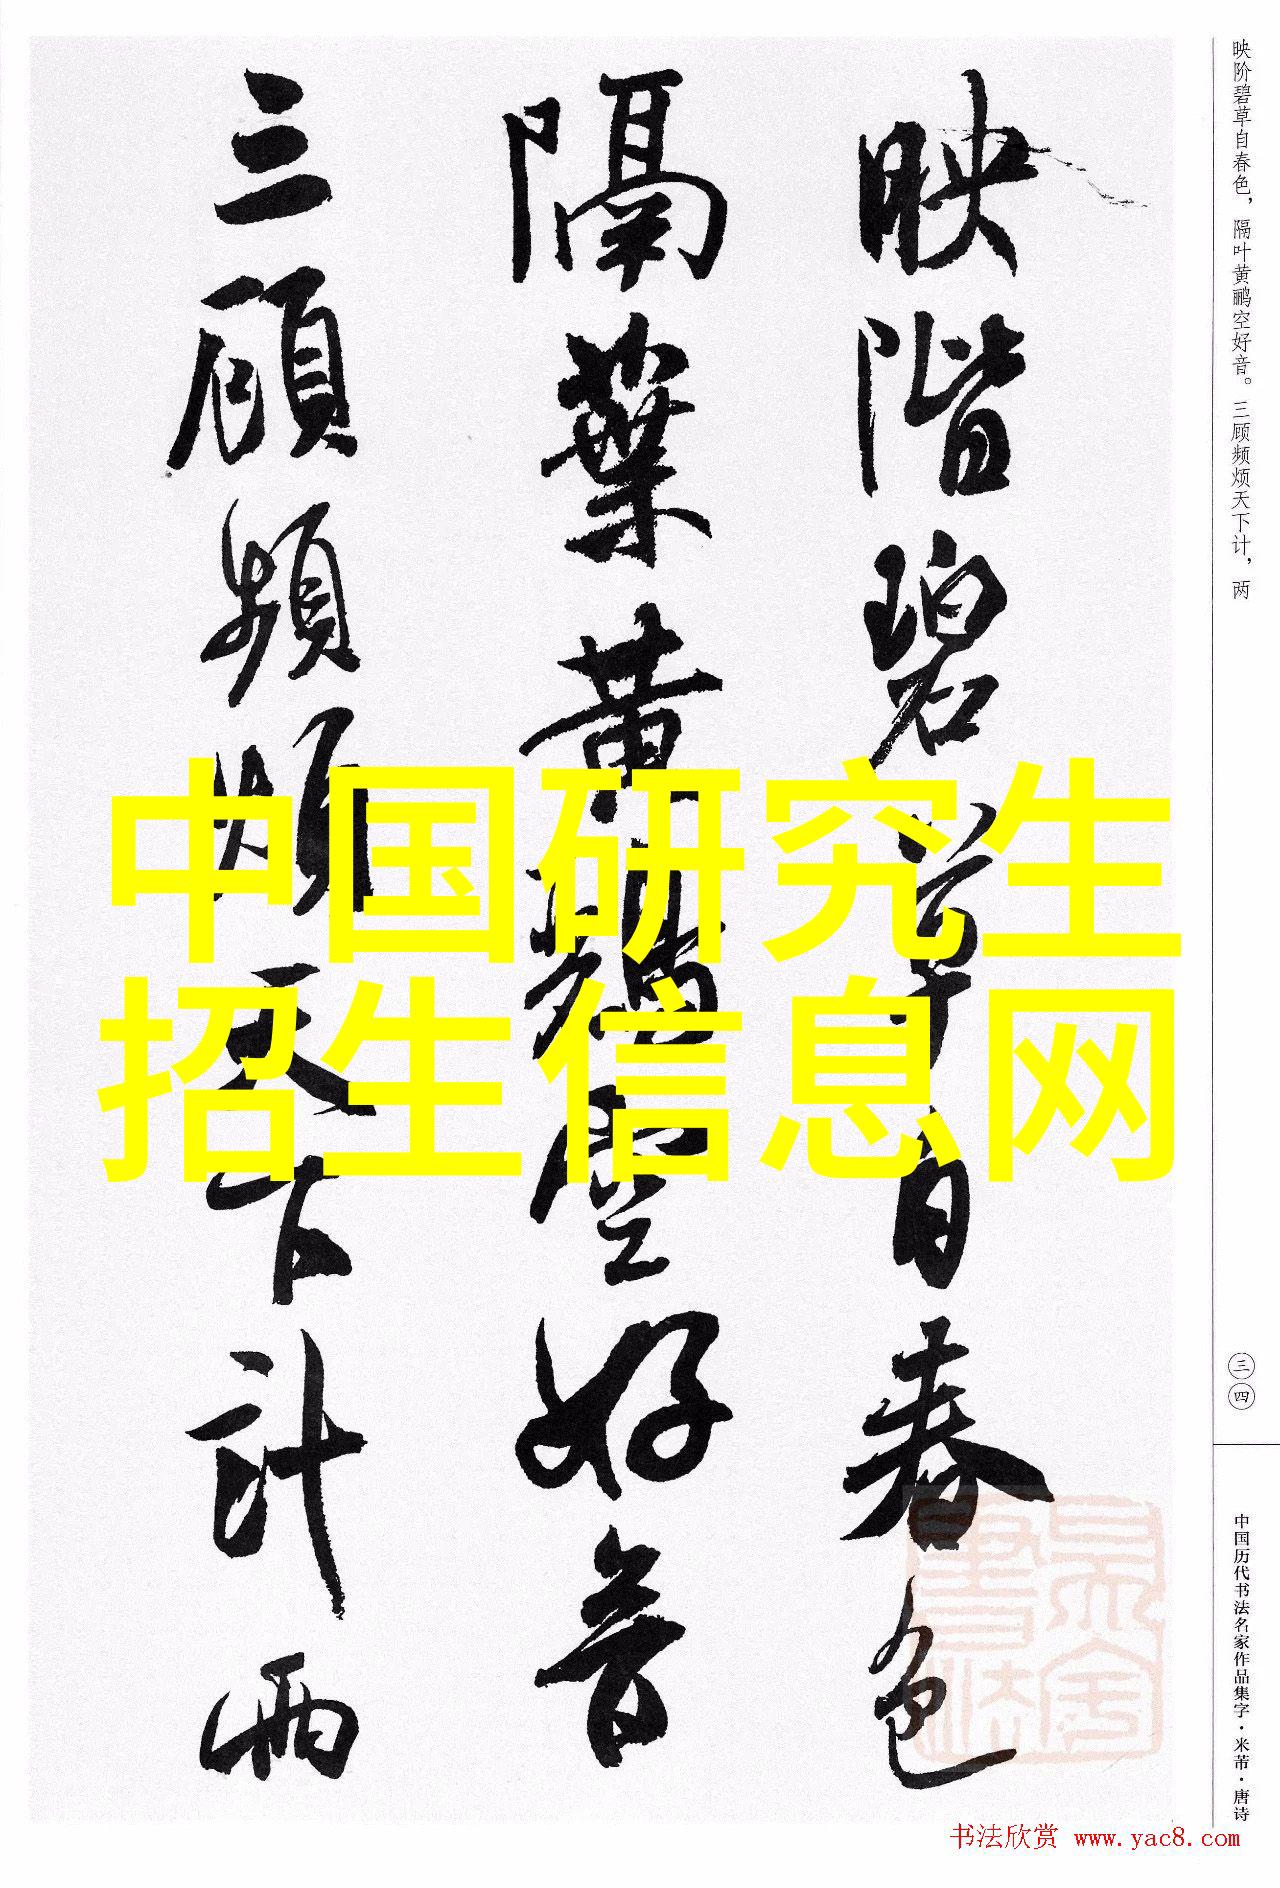 映階碧草自春色
隔葉黃鸝空好音
三顧頻煩天下計兩
中国研究生
招生信息网
映阶碧草自春色，隔叶黄鹂空好音。三顾频烦天下计，两
三四
中国历代书法名家作品集字·米芾·唐诗
书法欣赏 www.yac8.com